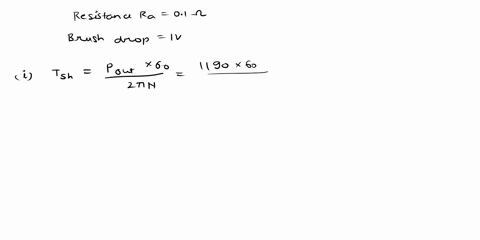 Resistance Ra = 0.1 Ω
Brush drop = 1V
(i) Tsh = Pout × 60 / 2πN = 1190 × 60